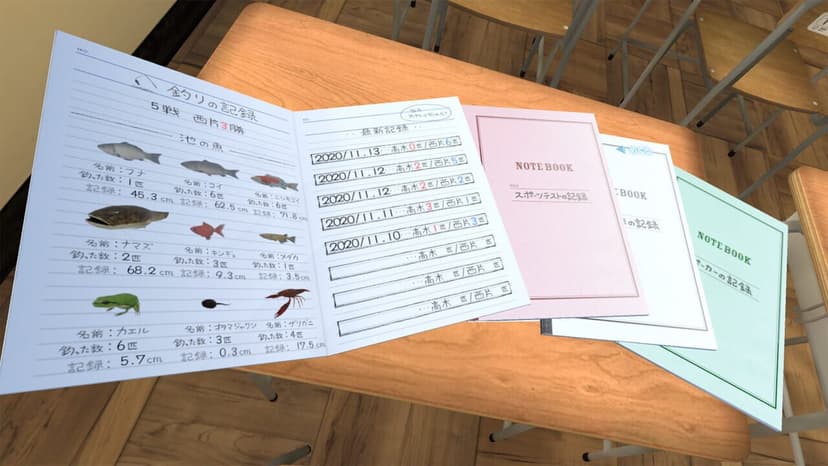 釣りの記録
5戦 西片3勝
池の魚
名前：フナ
釣った数：1匹
記録：45.3cm
名前：コイ
釣った数：6匹
記録：62.5cm
名前：ニシキゴイ
釣った数：6匹
記録：71.8cm
名前：ナマズ
釣った数：2匹
記録：68.2cm
名前：キンギョ
釣った数：3匹
記録：9.3cm
名前：メダカ
釣った数：1匹
記録：3.5cm
名前：カエル
釣った数：6匹
記録：5.7cm
名前：オタマジャクシ
釣った数：3匹
記録：0.3cm
名前：ザリガニ
釣った数：4匹
記録：17.5cm
最新記録
2020/11.13 高木0匹/西片6匹
2020/11.12 高木2匹/西片5匹
2020/11.12 高木2匹/西片2匹
2020/11.11 高木3匹/西片1匹
2020/11.10 高木1匹/西片3匹
高木 匹/西片 匹
高木 匹/西片 匹
高木 匹/西片 匹
NOTEBOOK
スポーツテストの記録
EBOOK
の記録
NOTEBOOK
ーカーの記録